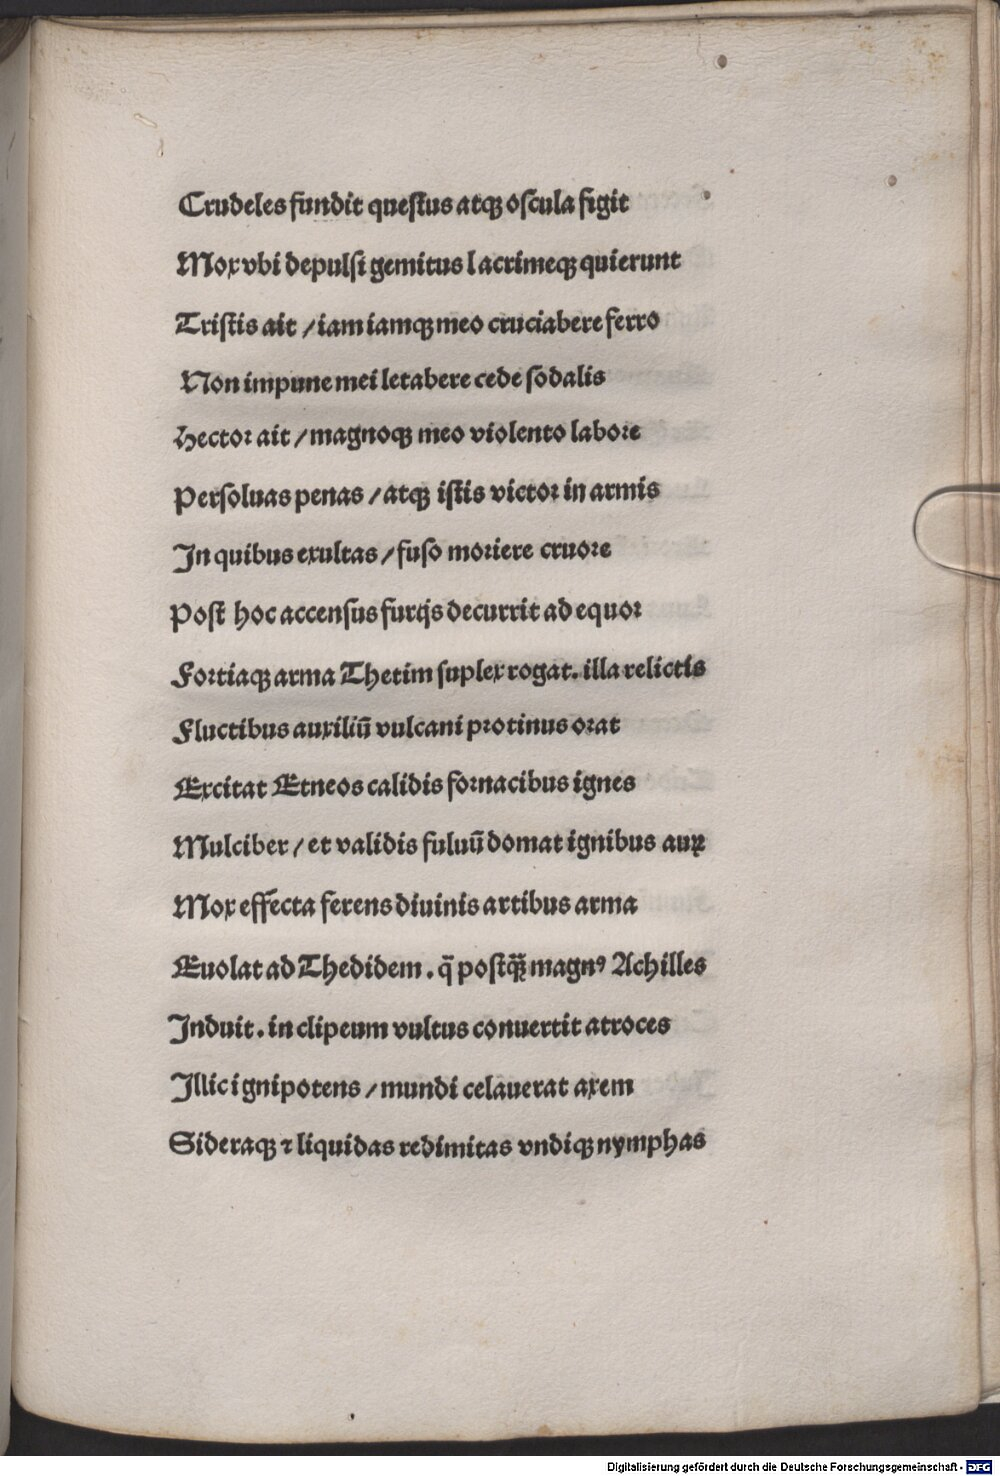 Crudeles fundit questus atqꝫ oscula figit
Mox vbi depulsi gemitus lacrimeqꝫ quierunt
Tristis ait / iam iamqꝫ meo cruciabere ferro
Non impune mei letabere cede sodalis
Hector ait / magnoqꝫ meo violento labore
Persoluas penas / atqꝫ istis victor in armis
In quibus exultas / fuso moriere cruore
Post hoc accensus furijs decurrit ad equor
Fortiaqꝫ arma Thetim suplex rogat. illa relictis
Fluctibus auxiliū vulcani protinus orat
Excitat Etneos calidis fornacibus ignes
Mulciber / et validis fuluū domat ignibus auꝝ
Mox effecta ferens diuinis artibus arma
Euolat ad Thedidem. q̄ postqꝫ̄ magnꝰ Achilles
Induit. in clipeum vultus conuertit atroces
Illic ignipotens / mundi celauerat axem
Sideraqꝫ ⁊ liquidas redimitas vndiqꝫ nymphas
Digitalisierung gefördert durch die Deutsche Forschungsgemeinschaft - DFG